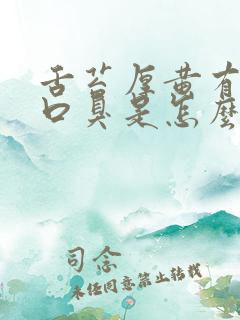 舌苔厚黄有
口臭是怎么
司念
未经同意禁止转载